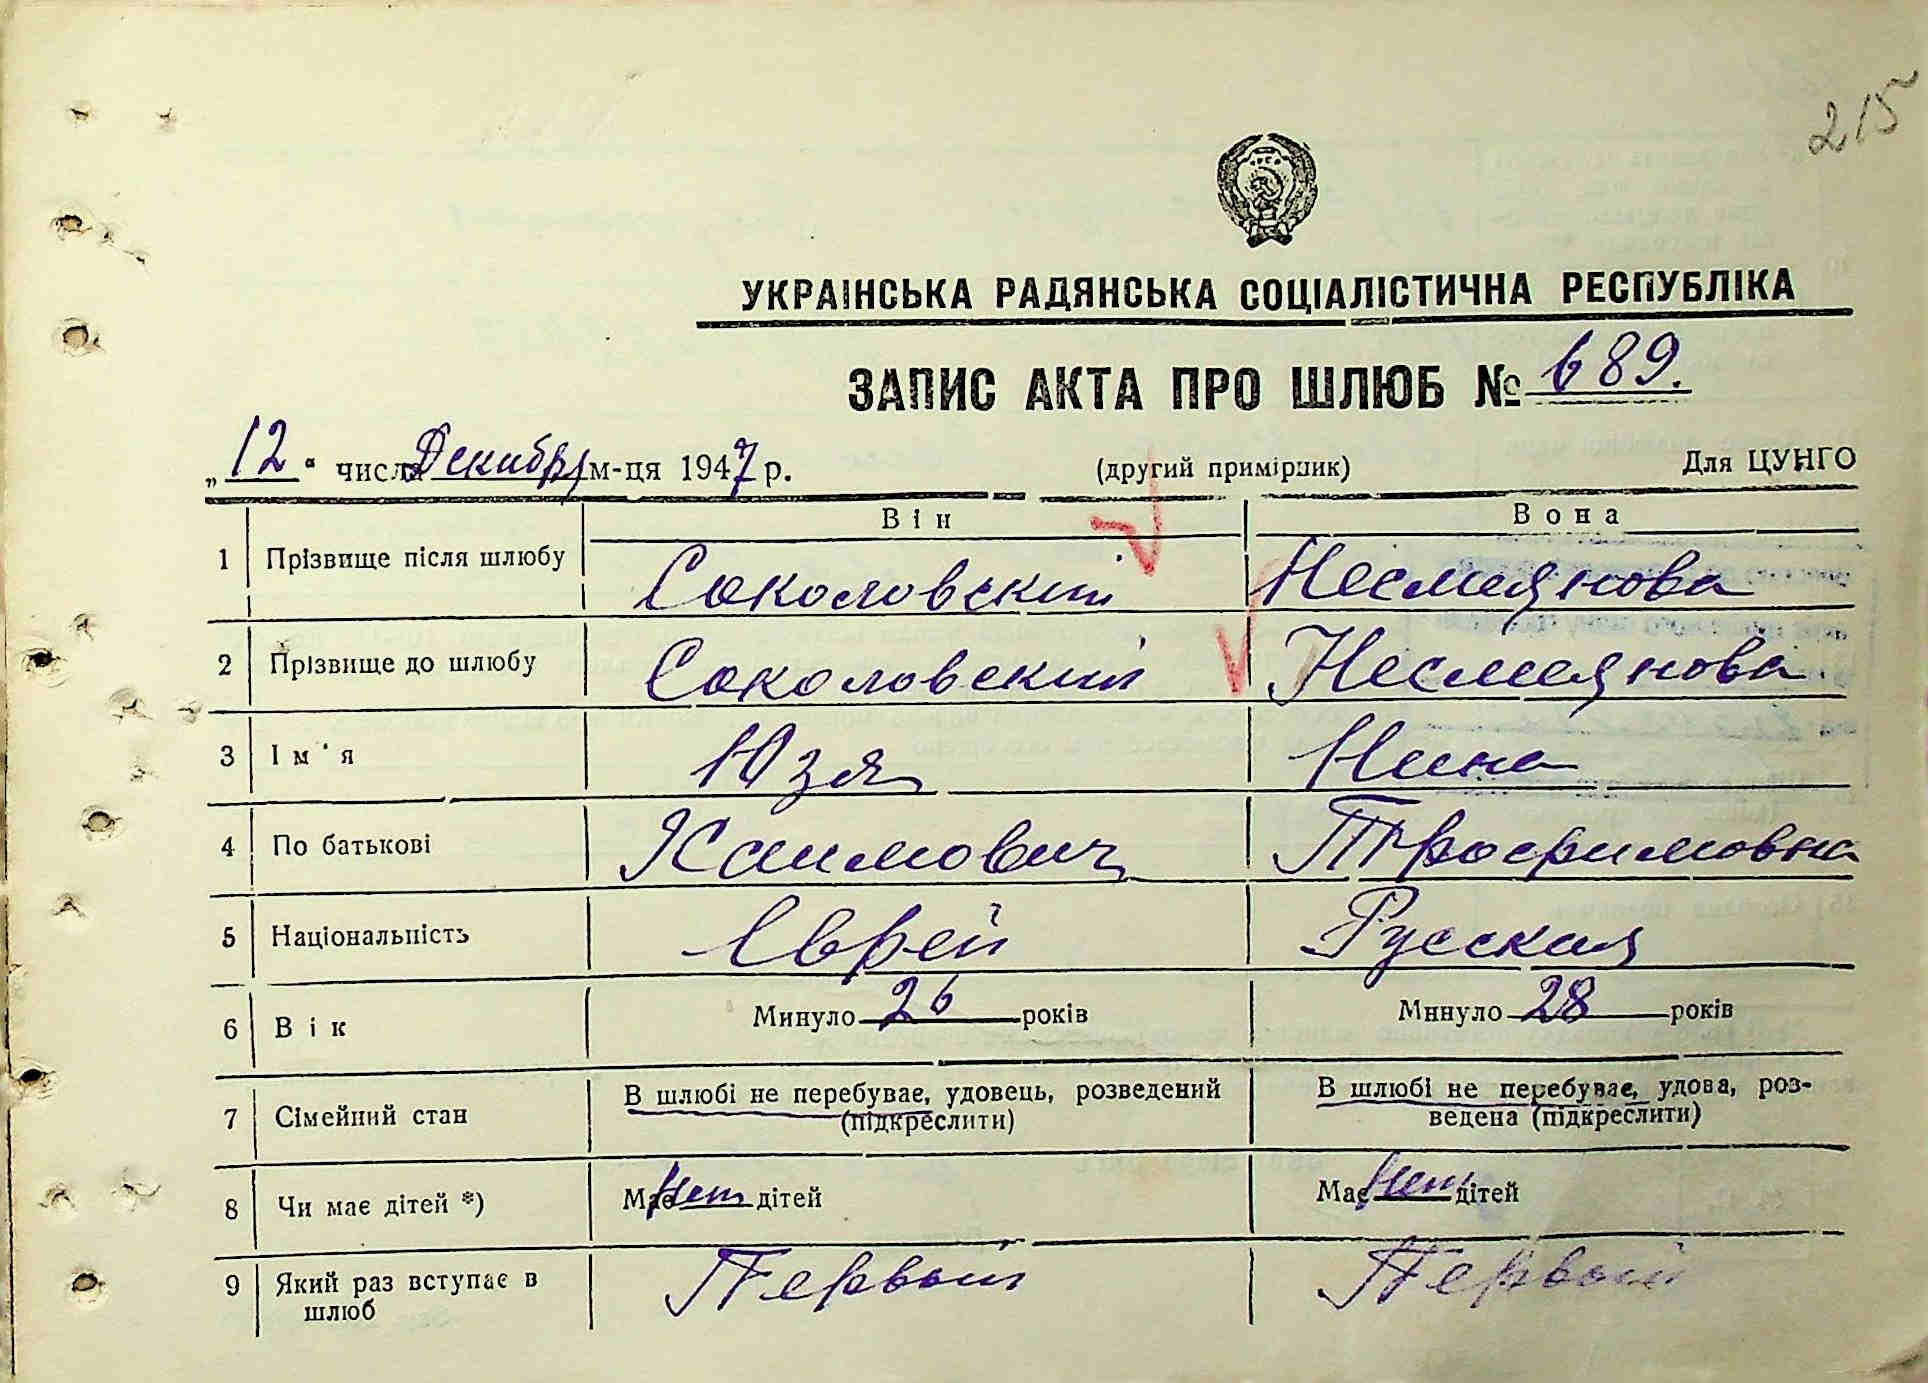 215
УКРАЇНСЬКА РАДЯНСЬКА СОЦІАЛІСТИЧНА РЕСПУБЛІКА
ЗАПИС АКТА ПРО ШЛЮБ № 689.
„12“ числа Декабря м-ця 1947 р. (другий примірник) Для ЦУНГО
Він Вона
1 Прізвище після шлюбу Соколовский Несмеянова
2 Прізвище до шлюбу Соколовский Несмеянова
3 Ім'я Юзя Нина
4 По батькові Хаимович Трофимовна
5 Національність Еврей Русская
6 Вік Минуло 26 років Минуло 28 років
7 Сімейний стан В шлюбі не перебуває, удовець, розведений (підкреслити) В шлюбі не перебуває, удова, роз-
ведена (підкреслити)
8 Чи має дітей *) Має Нет дітей Має Нет дітей
9 Який раз вступає в Первый Первый
шлюб